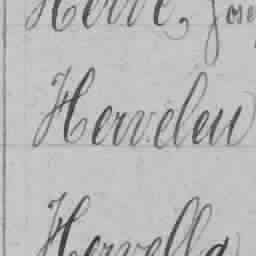 Herve, Jose
Herveleu
Hervella